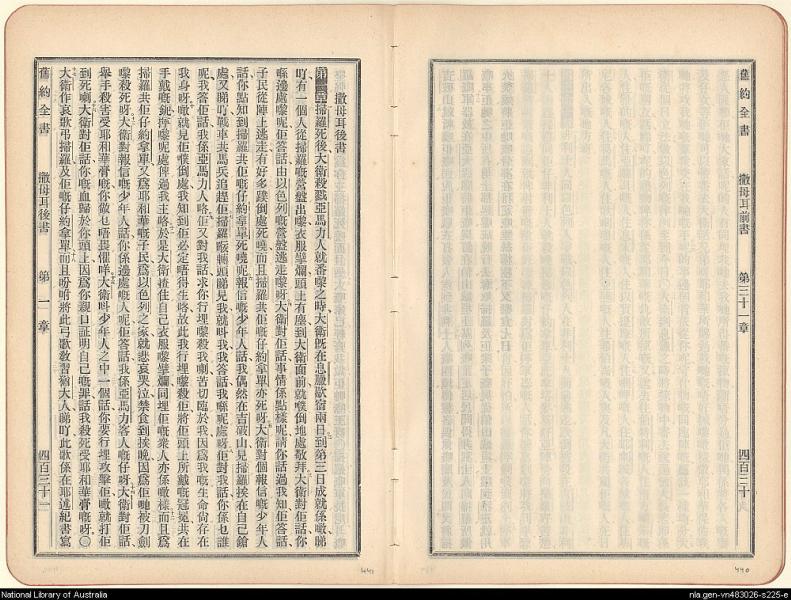 舊約全書 撒母耳前書 第三十一章 四百三十
撒母耳後書
第一章掃羅死後大衛殺戮亞馬力人就番嚟之時大衛既在息臘歇宿兩日到第三日成就係噉睇
吖有一個人從掃羅嘅營盤出嚟衣服擘爛頭上有塵到大衛面前就噗倒地處敬拜大衛對佢話你
喺邊處嚟呢佢答話由以色列嘅營盤逃走嚟呀大衛對佢話事情係點樣呢請你話過我知佢答話
子民從陣上逃走有好多蹼倒處死嘵而且掃羅共佢嘅仔約拿單亦死呀大衛對個報信嘅少年人
話你點知到掃羅共佢嘅仔約拿單死嘵呢報信嘅少年人話我偶然在吉破山見掃羅挨在自己鎗
處又睇吖戰車共馬兵追趕佢掃羅喉轉頭睇見我就叫我我答話我喺呢處呀佢對我話你係乜誰
呢我答佢話我係亞馬力人咯佢又對我話求你行埋嚟殺我喇苦切臨於我因爲我嘅生命尙存在
我身呀噉就見佢噗倒處我知到佢必定唔得生咯故此我行埋嚟殺佢將佢頭上所戴嘅冠冕共在
手戴嘅鈪捧嚟呢處俾過我主咯於是大衛揸住自己衣服嚟擘爛同埋佢嘅衆人亦係噉樣而且爲
掃羅共佢仔約拿單又爲耶和華嘅子民爲以色列之家就悲哀哭泣禁食到挨晚因爲佢哋被刀劍
嚟殺死呀大衛對報信嘅少年人話你係邊處嘅人呢佢答話我係亞馬力客人嘅仔呀大衛對佢話
舉手殺害受耶和華膏嘅你做乜唔畏懼咩大衛叫少年人之中一個話你要行埋攻擊佢噉就打佢
到死喇大衛對佢話你嘅血歸於你頭上因爲你親口証明自己嘅罪話我殺死受耶和華膏嘅呀〇
大衛作哀歌弔掃羅及佢嘅仔約拿單而且吩咐將此弓歌敎習猶大人睇吖此歌係在耶述紀書寫
舊約全書 撒母耳後書 第一章 四百三十一
441
440
National Library of Australia
nla.gen-vn483026-s225-e